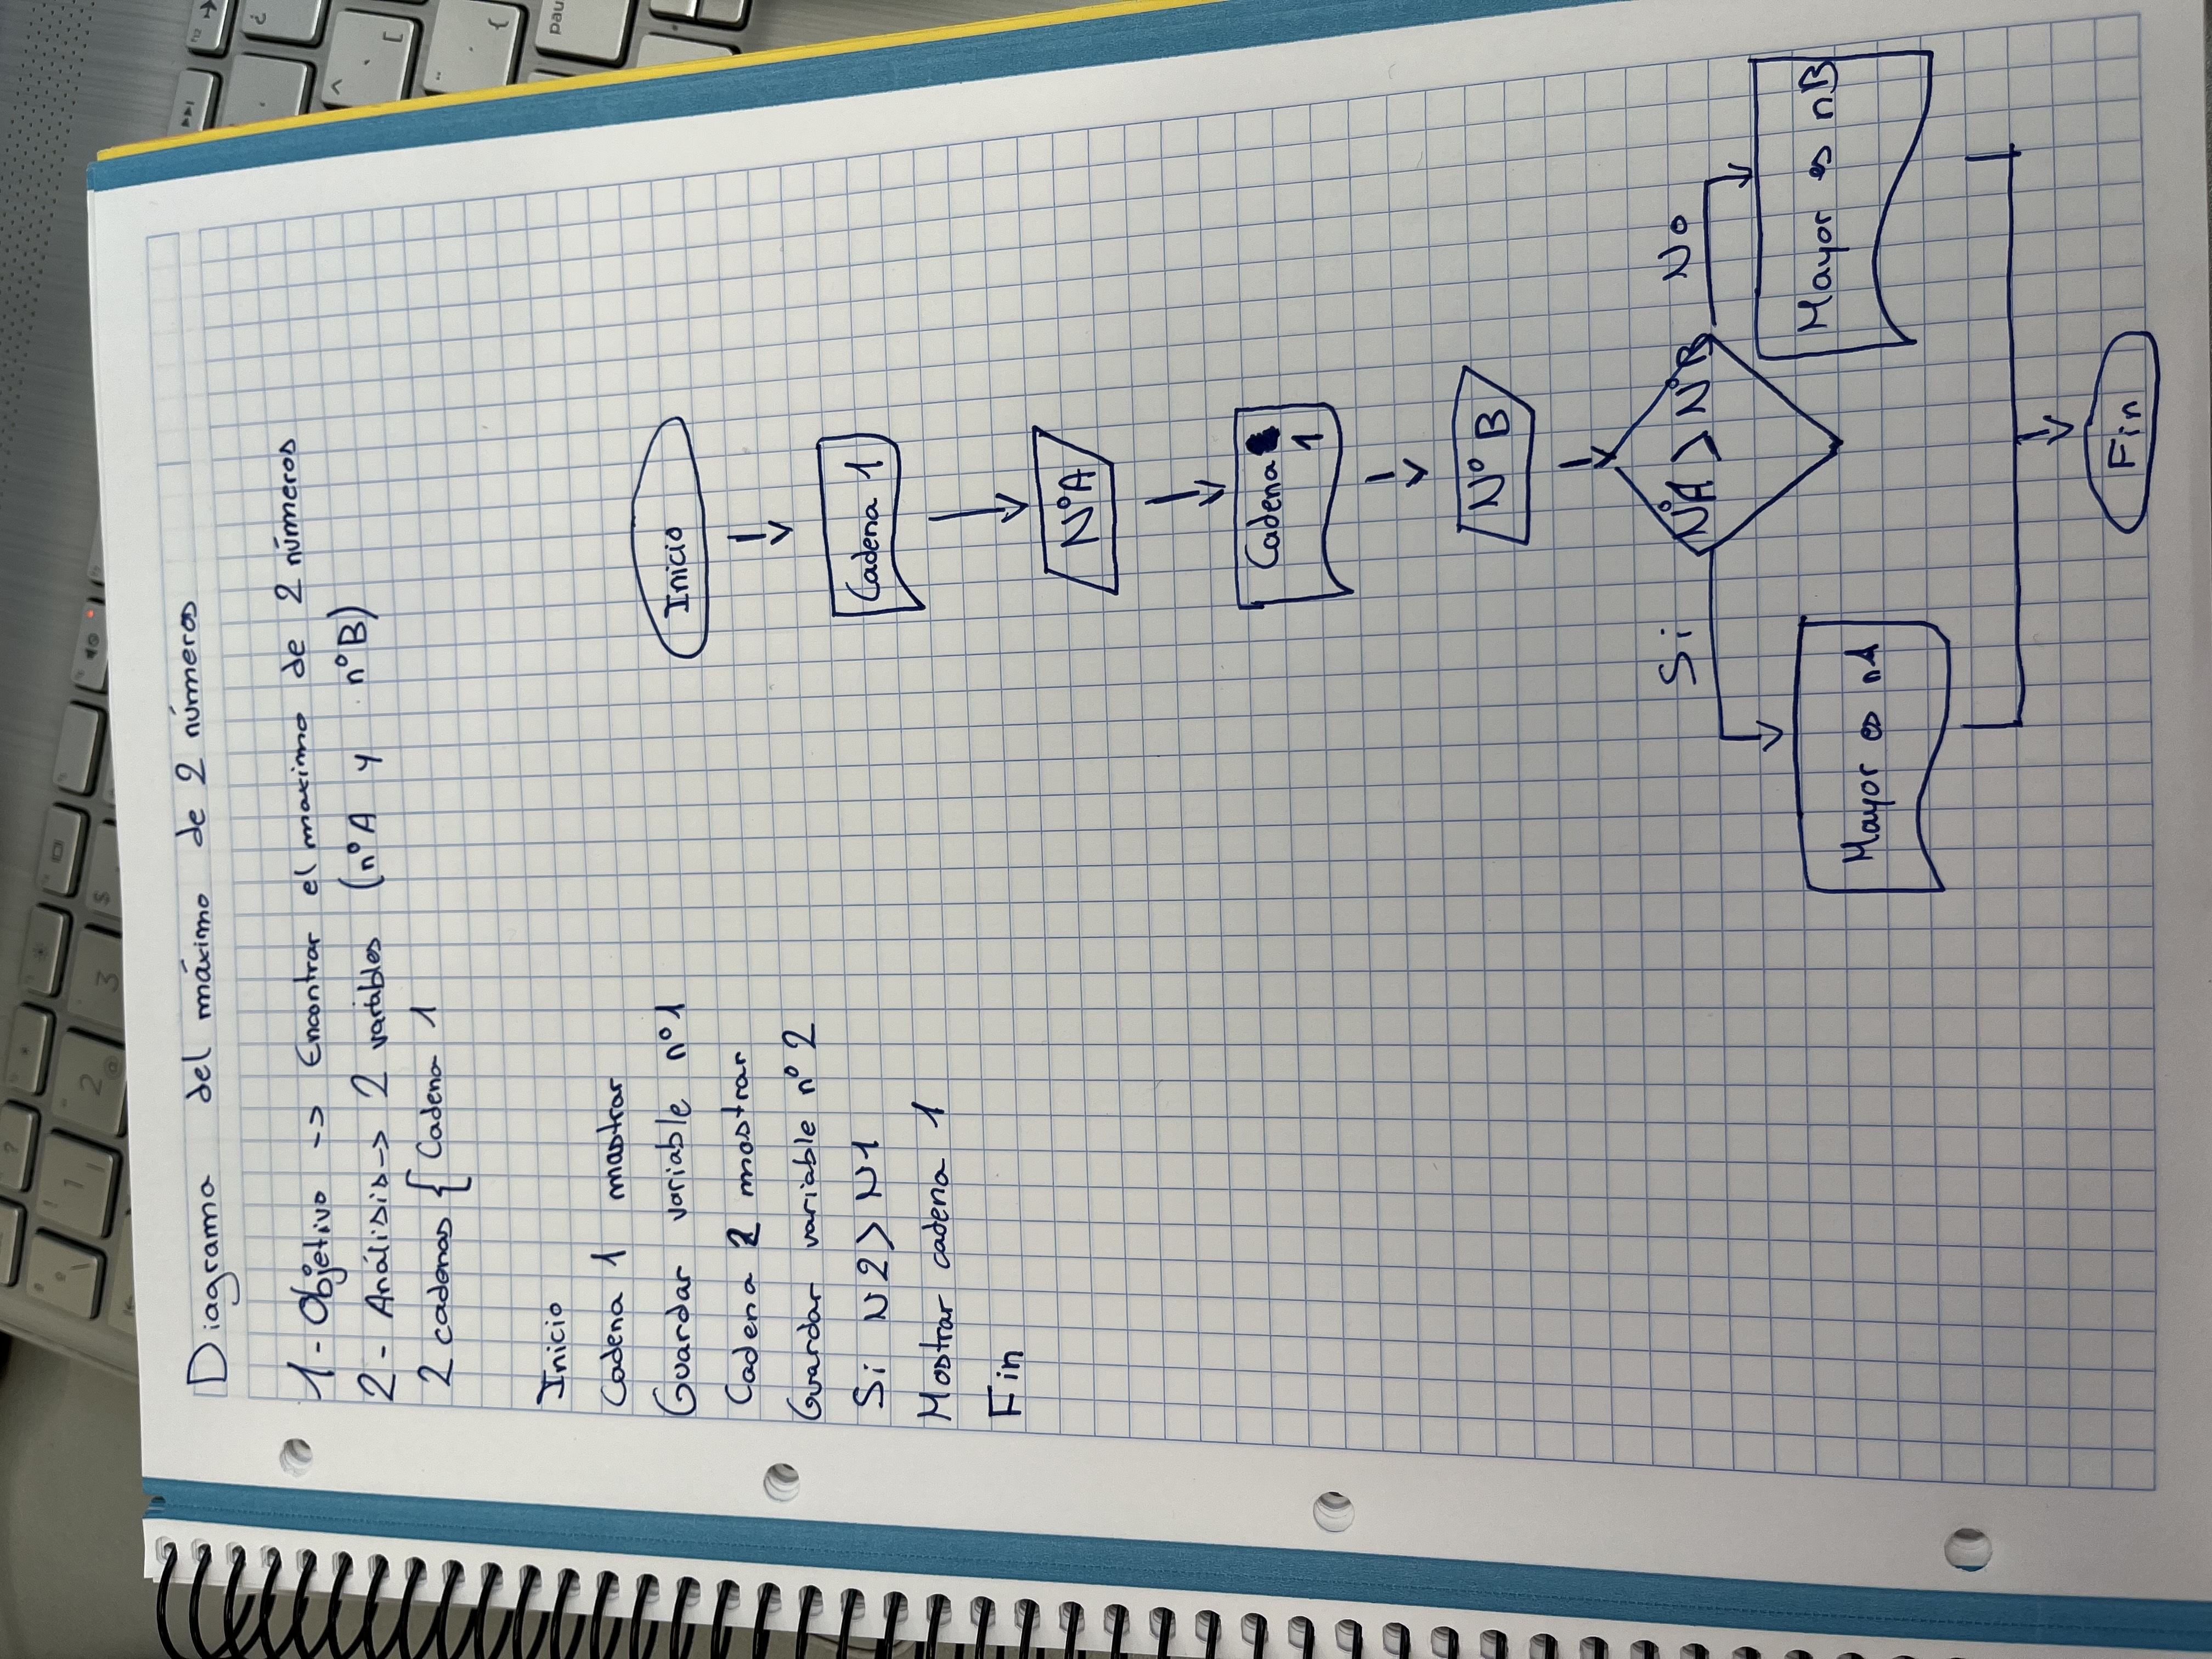 Diagrama del máximo de 2 números
1- Objetivo -> Encontrar el maximo de 2 números
2- Análisis-> 2 variables (nºA y nºB)
2 cadenas { Cadena 1
Inicio
Cadena 1 mostrar
Guardar variable nº1
Cadena 2 mostrar
Guardar variable nº 2
Si N2 > N1
Mostrar cadena 1
Fin
Inicio
Cadena 1
NºA
Cadena
1
Nº B
Si NºA > NºB No
Mayor es nA
Mayor es nB
Fin
?
1
2
@
3
$
pau
{
[
^
¿